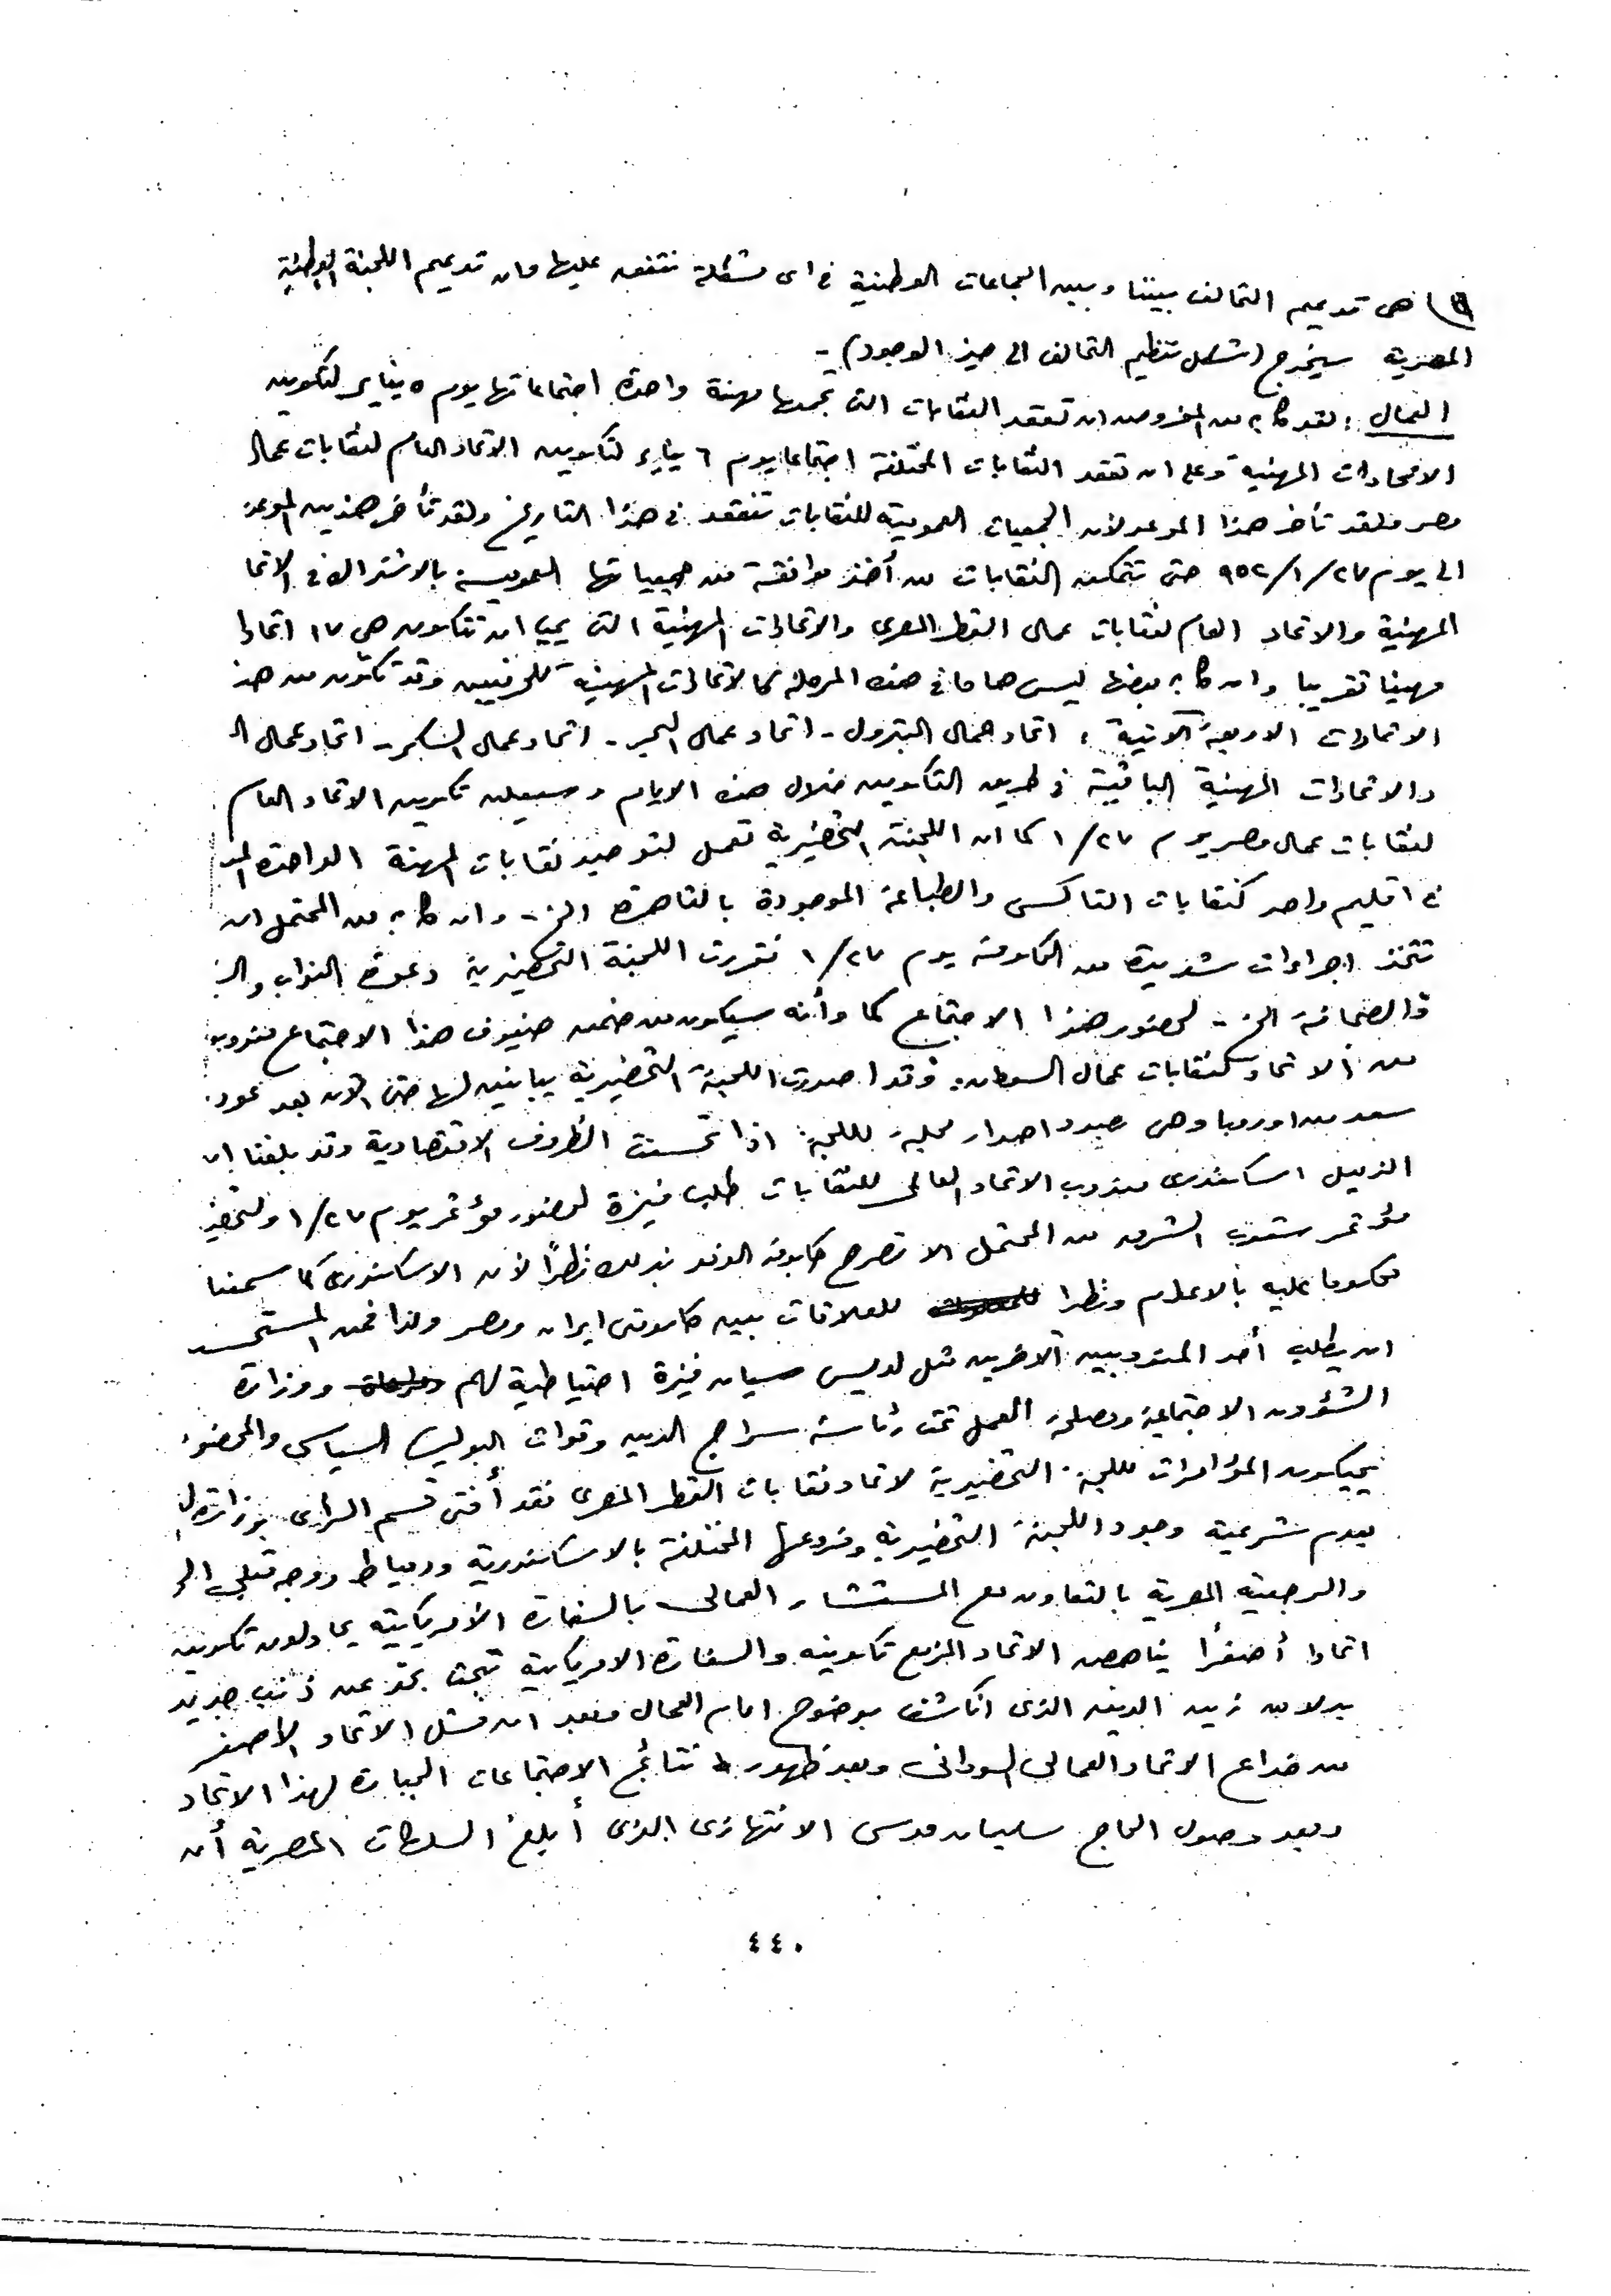 هى تدعيم التحالف بيننا وبين الجماعات الوطنية فى اى مشكلة نتفق عليها وان تدعيم اللجنة الوطنية
المصرية سيخرج (شكل تنظيم التحالف الى حيز الوجود) -
العمال : لقد كان من المفروض ان تعقد النقابات التى تجمعها مهنة واحدة اجتماعاتها يوم ٥ يناير لتكوين
الاتحادات المهنية وعلى ان تعقد النقابات المختلفة اجتماعا يوم ٦ يناير لتكوين الاتحاد العام لنقابات عمال
مصر ولقد تأخر هذا الموعد لأن الجمعيات العمومية للنقابات تنعقد فى هذا التاريخ ولقد تأخر هذين الموعد
الى يوم ٢٧/١/٩٥٢ حتى تتمكن النقابات من أخذ موافقة من جمعياتها العمومية بالاشتراك فى الاتحا
المهنية والاتحاد العام لنقابات عمال القطر المصرى والاتحادات المهنية التى يجب ان تتكون هى ١٧ اتحادا
مهنيا تقريبا وان كان بعضها ليس هاما فى هذه المرحلة كالاتحادات المهنية للحرفيين وقد تكون من هذ
الاتحادات الاربعة الآتية : اتحاد عمال البترول - اتحاد عمال - اتحاد عمال السكر - اتحاد عمال الـ
والاتحادات المهنية الباقية فى طريق التكوين خلال هذه الايام وسيعلن تكوين الاتحاد العام
لنقابات عمال مصر يوم ٢٧/١ كما ان اللجنة التحضيرية تعمل لتوحيد نقابات المهنة الواحدة
فى اقليم واحد كنقابات التاكسى والطباعة الموجودة بالقاهرة الخ - وان كان من المحتمل ان
تتخذ اجراءات شديدة من الحكومة يوم ٢٧/١ فقررت اللجنة التحضيرية دعوة النواب
والصحافة الخ - لحضور هذا الاجتماع كما وأنه سيكون من ضمن ضيوف هذا الاجتماع مندوب
من الاتحاد كنقابات عمال السودان. وقد اصدرت اللجنة التحضيرية بيانين لها حتى الآن بعد عود
سعد من اوروبا وهى بصدد اصدار مجلة للجنة اذا تحسنت الظروف الاقتصادية وقد بلغنا ان
الزميل اسكندرى مندوب الاتحاد العالمى للنقابات طلب فيزة لحضور مؤتمر يوم ٢٧/١ ولتحضير
مؤتمر شعوب الشرق من المحتمل الا تصرح حكومة الوفد بذلك نظرًا لأن الاسكندرى كما سمعنا
محكوما عليه بالاعدام ونظرا للعلاقات بين حكومتى ايران ومصر ولذا فمن المستحسن
ان يطلب أحد المندوبين الآخرين مثل لويس سيان فيزة احتياطية لهم ووزارة
الشؤون الاجتماعية ومصلحة العمل تحت رئاسة سراج الدين وقوات البوليس السياسى والمخصوص
يحيكون المؤامرات للجنة التحضيرية لاتحاد نقابات القطر المصرى فقد أفتى قسم الرأى بوزارة
بعدم شرعية وجود اللجنة التحضيرية وفروعها المختلفة بالاسكندرية ودمياط ووجه قبلى
والرجعية المصرية بالتعاون مع المستشار العمالى بالسفارة الأمريكية يحاولون تكوين
اتحادا أصفرًا يناهض الاتحاد المزمع تكوينه والسفارة الامريكية تبحث بجد عن ذنب جديد
بدلا من زين الدين الذى انكشف بوضوح امام العمال فبعد ان فشل الاتحاد الأصفر
من خداع الاتحاد العمالى السودانى وبعد ظهور نتائج الاجتماعات الجبارة لهذا الاتحاد
وبعد وصول الحاج سليمان موسى الانتهازى الذى أبلغ السلطات المصرية أن
٤٤٠